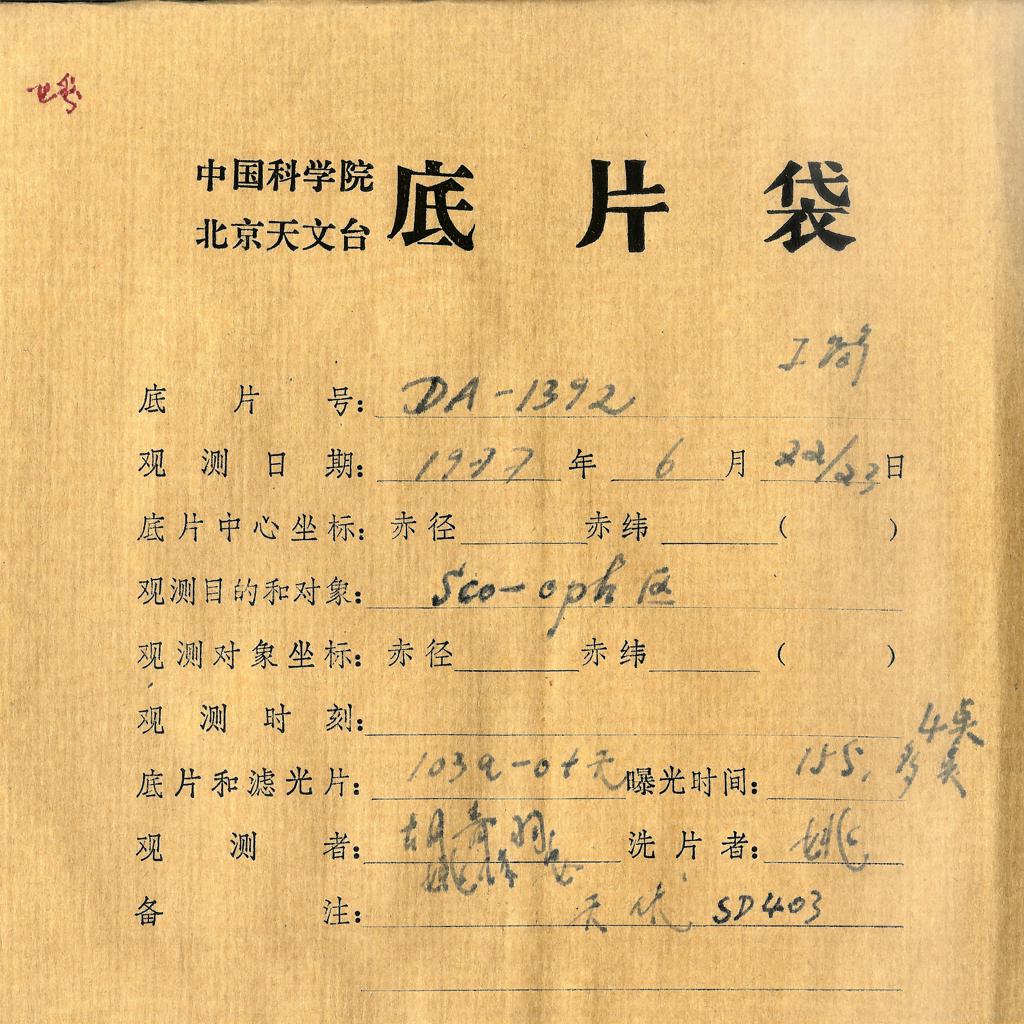 中国科学院
北京天文台 底片袋
底片号: DA-1392
观测日期: 1977 年 6 月 22/23 日
底片中心坐标: 赤径 赤纬 ( )
观测目的和对象: Sco-oph 区
观测对象坐标: 赤径 赤纬 ( )
观测时刻:
底片和滤光片: 103a-0+无 曝光时间: 155,
观测者: 胡 洗片者: 姚
备注: SD403